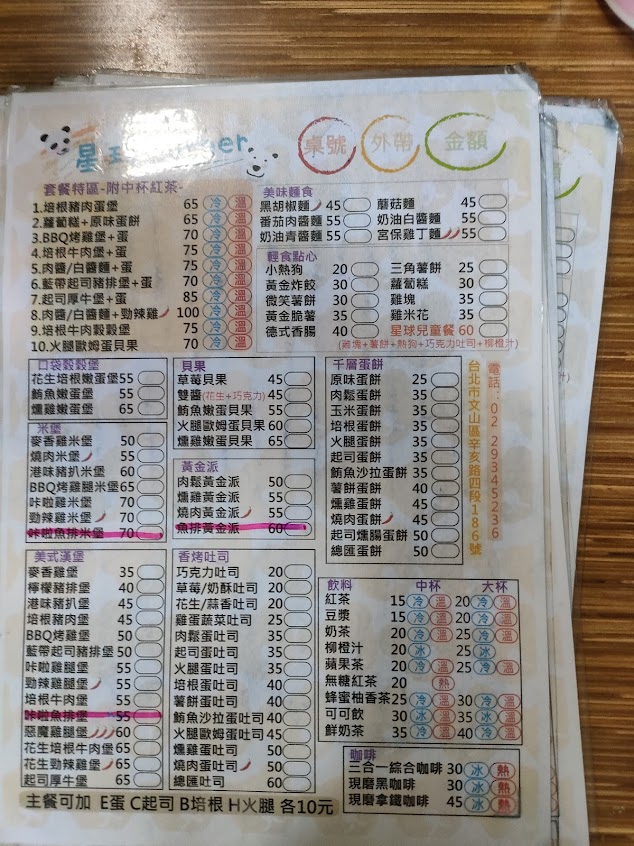 星
桌號 外帶 金額
套餐特區-附中杯紅茶-
1.培根豬肉蛋堡 65 冷 溫
2.蘿蔔糕+原味蛋餅 65 冷 溫
3.BBQ烤雞堡+蛋 70 冷 溫
4.培根牛肉堡+蛋 75 冷 溫
5.肉醬/白醬麵+蛋 75 冷 溫
6.藍帶起司豬排堡+蛋 70 冷 溫
7.起司厚牛堡+蛋 85 冷 溫
8.肉醬/白醬麵+勁辣雞 100 冷 溫
9.培根牛肉穀穀堡 75 冷 溫
10.火腿歐姆蛋貝果 70 冷 溫
美味麵食
黑胡椒麵 45 蘑菇麵 45
番茄肉醬麵 55 奶油白醬麵 55
奶油青醬麵 55 宮保雞丁麵 55
輕食點心
小熱狗 20 三角薯餅 25
黃金炸餃 30 蘿蔔糕 30
微笑薯餅 30 雞塊 35
黃金脆薯 35 雞米花 35
德式香腸 40 星球兒童餐 60
(雞塊+薯餅+熱狗+巧克力吐司+柳橙汁)
口袋穀穀堡
花生培根嫩蛋堡 55
鮪魚嫩蛋堡 55
燻雞嫩蛋堡 65
米堡
麥香雞米堡 50
燒肉米堡 55
港味豬扒米堡 60
BBQ烤雞腿米堡 65
咔啦雞米堡 70
勁辣雞米堡 70
咔啦魚排米堡 70
美式漢堡
麥香雞堡 35
檸檬豬排堡 40
港味豬扒堡 45
培根豬肉堡 45
BBQ烤雞堡 50
藍帶起司豬排堡 50
咔啦雞腿堡 55
勁辣雞腿堡 55
培根牛肉堡 55
咔啦魚排堡 55
惡魔雞腿堡 60
花生培根牛肉堡 65
花生勁辣雞堡 65
起司厚牛堡 65
貝果
草莓貝果 45
雙醬(花生+巧克力) 45
鮪魚嫩蛋貝果 55
火腿歐姆蛋貝果 60
燻雞嫩蛋貝果 65
黃金派
肉鬆黃金派 50
燻雞黃金派 55
燒肉黃金派 55
魚排黃金派 60
香烤吐司
巧克力吐司 20
草莓/奶酥吐司 20
花生/蒜香吐司 20
雞蛋蔬菜吐司 25
肉鬆蛋吐司 35
起司蛋吐司 35
火腿蛋吐司 35
培根蛋吐司 40
薯餅蛋吐司 40
鮪魚沙拉蛋吐司 40
火腿歐姆蛋吐司 45
燻雞蛋吐司 50
燒肉蛋吐司 50
總匯吐司 60
千層蛋餅
原味蛋餅 25
肉鬆蛋餅 35
玉米蛋餅 35
培根蛋餅 35
火腿蛋餅 35
起司蛋餅 35
鮪魚沙拉蛋餅 35
薯餅蛋餅 40
燻雞蛋餅 45
燒肉蛋餅 45
起司燻腸蛋餅 50
總匯蛋餅 50
電話:02 29345236
台北市文山區辛亥路四段186號
飲料 中杯 大杯
紅茶 15 冷 溫 20 冷 溫
豆漿 15 冷 溫 20 冷 溫
奶茶 20 冷 溫 25 冷 溫
柳橙汁 20 冰 25 冰
蘋果茶 20 冷 溫 25 冷 溫
無糖紅茶 20 熱
蜂蜜柚香茶 25 冷 溫 30 冷 溫
可可飲 30 冰 溫 35 冰 溫
鮮奶茶 35 冷 溫 40 冷 溫
咖啡
三合一綜合咖啡 30 冰 熱
現磨黑咖啡 30 冰 熱
現磨拿鐵咖啡 45 冰 熱
主餐可加 E蛋 C起司 B培根 H火腿 各10元